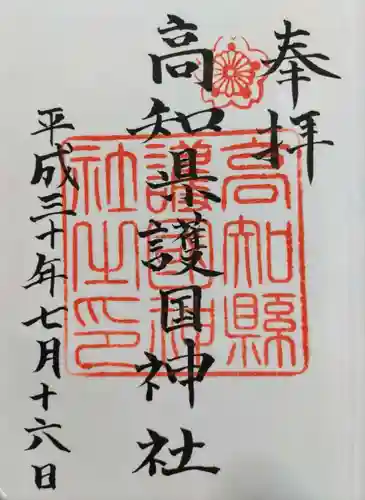 奉拝
高知県護国神社
平成三十年七月十六日
高知縣
護国神
社之印